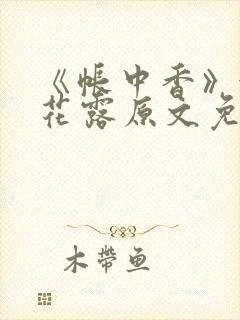 《帐中香》
花露原文免
木带鱼